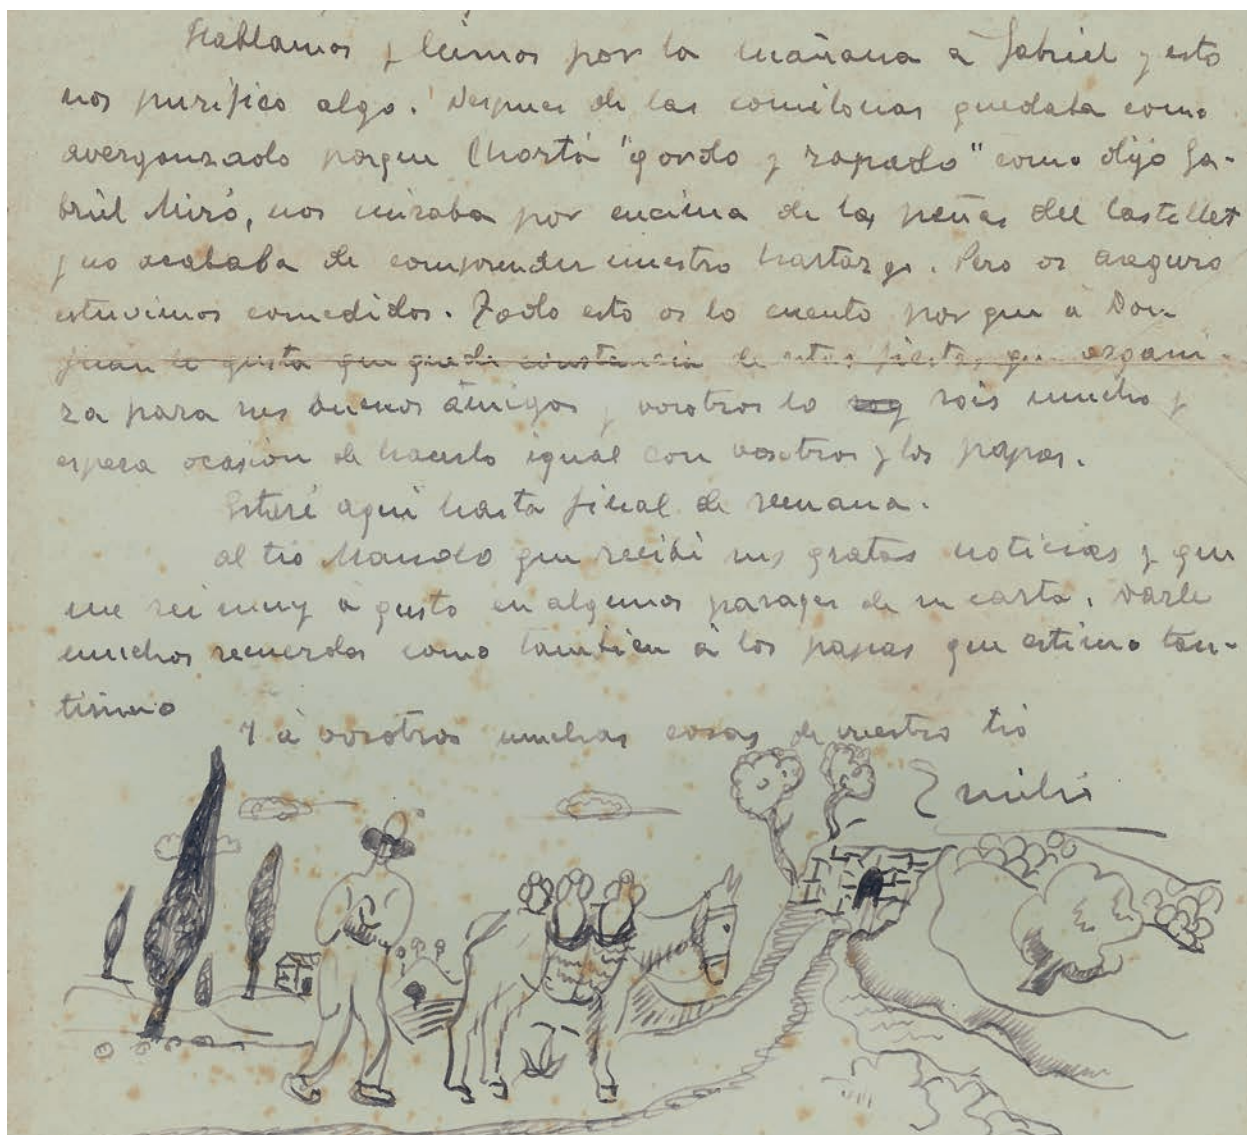 Hablamos y leimos por la mañana à Gabriel y esto
nos purificó algo. Despues de las comilonas quedaba como
avergonzado porque Chortá "gordo y rapado" como dijo Ga-
briel Miró, nos miraba por encima de las peñas del Castellet
y no acababa de comprender nuestro hartazgo. Pero os aseguro
estuvimos comedidos. Todo esto os lo cuento por que à Don
Juan le gusta que quede constancia de estas fiestas que organi-
za para sus buenos amigos y vosotros lo sois mucho y
espera ocasión de hacerlo igual con vosotros y los papas.
Estaré aqui hasta final de semana.
al tio Nando que recibi sus gratas noticias y que
me rei muy à gusto en algunos parages de su carta. Darle
muchos recuerdos como tambien à los papas que estimo tan-
tisimo
Y à vosotros muchas cosas de vuestro tio
Emilio